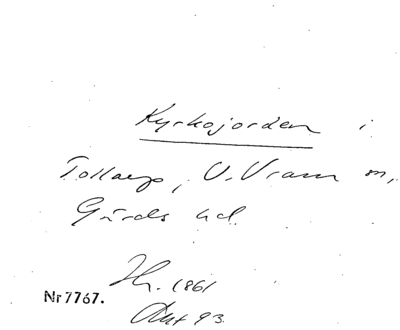 Kyrkojorden i
Tollarp, V. Vram m,
Gärds hd.
Hr. 1861
Nr 7767.
Akt 93.